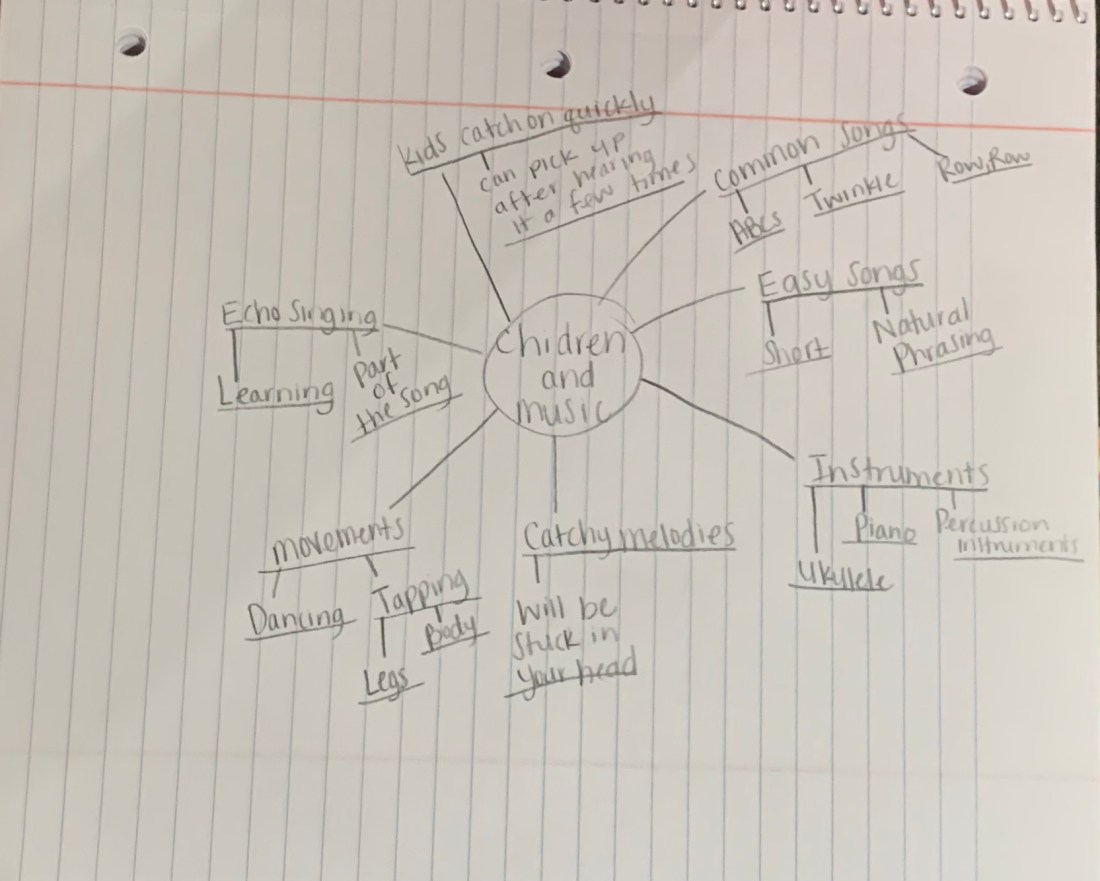 Kids catch on quickly
can pick up
after hearing
it a few times
Common Songs
ABCs
Twinkle
Row, Row
Easy Songs
Short
Natural
Phrasing
Echo Singing
Learning
Part
of
the song
Chidren
and
music
Instruments
Ukulele
Piano
Percussion
Instruments
movements
Dancing
Tapping
Legs
Body
Catchy melodies
Will be
Stuck in
your head